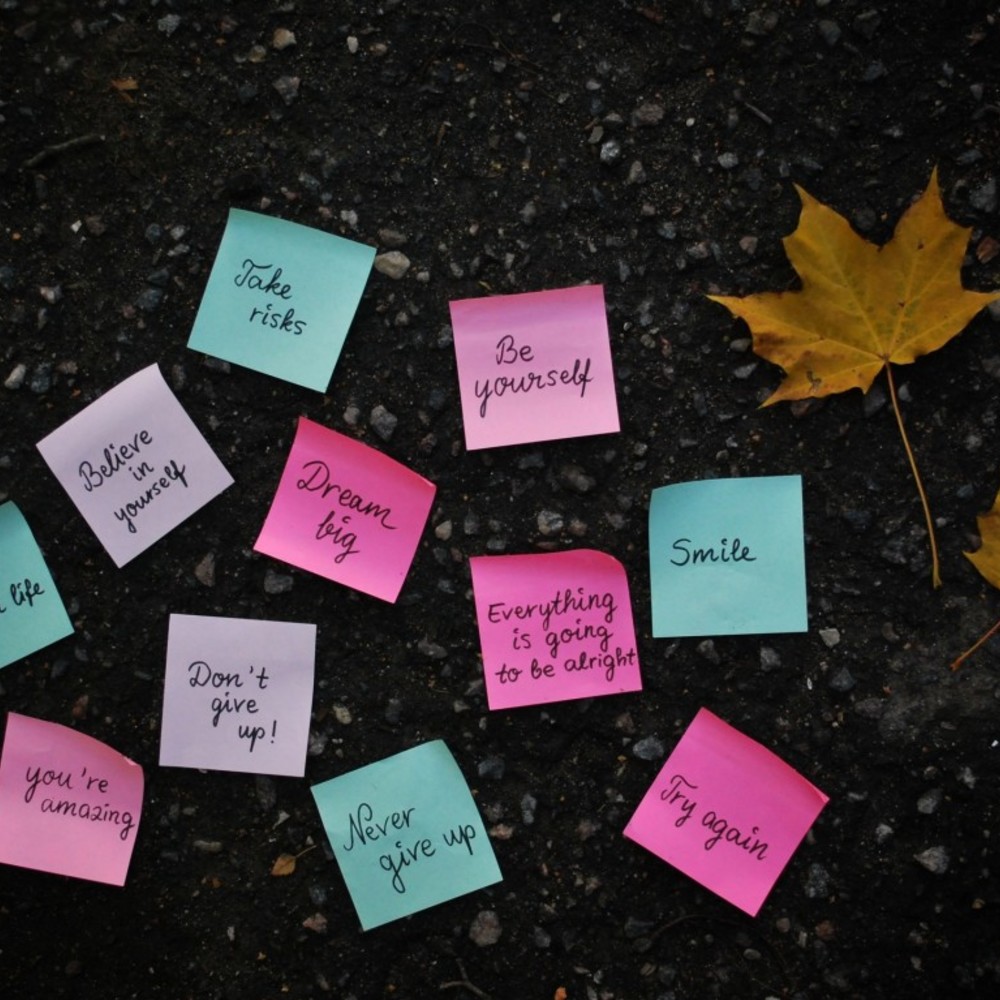 Take
risks
Be
yourself
Believe
in
yourself
Dream
big
Smile
life
Everything
is going
to be alright
Don't
give
up!
you're
amazing
Never
give up
Try again